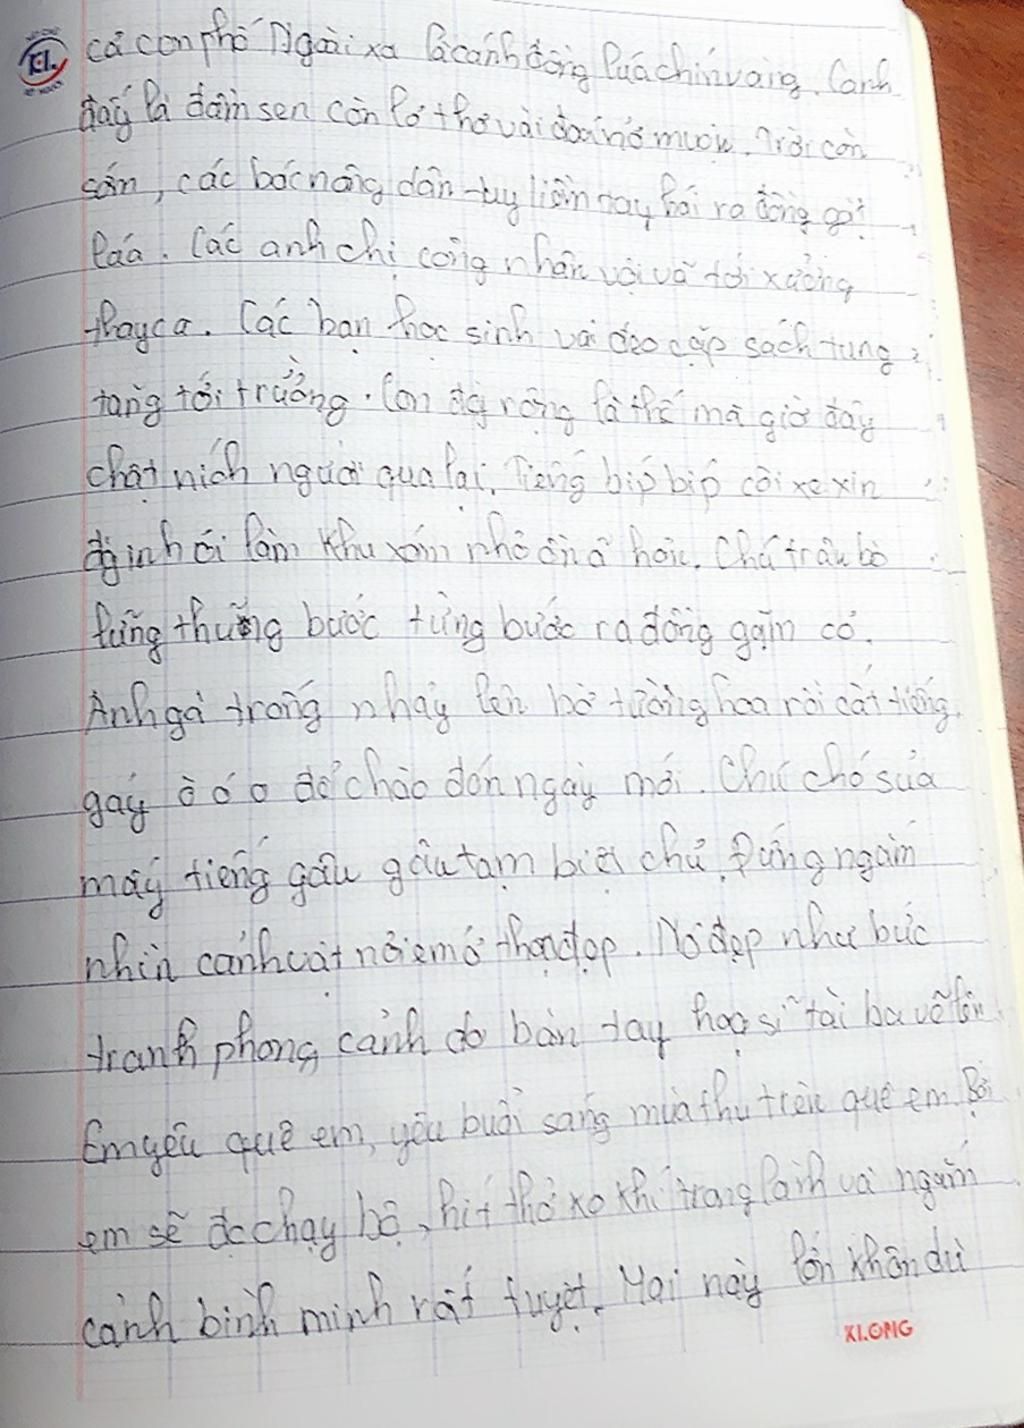 cả con phố Ngoài xa là cánh đồng lúa chín vàng. Cạnh
đấy là đầm sen còn lơ thơ vài đoá nở muộn. Trời còn
sớm, các bác nông dân tay liềm tay hái ra đồng gặt
lúa. Các anh chị công nhân vội vã tới xưởng
thay ca. Các bạn học sinh vai đeo cặp sách tung
tăng tới trường. Con đg rộng là thế mà giờ đây
chật ních người qua lại. Tiếng bíp bíp còi xe xin
đg inh ỏi làm khu xóm nhỏ ồn ã hơn. Chú trâu bò
lững thững bước từng bước ra đồng gặm cỏ.
Anh gà trống nhảy lên bờ tường hoa rồi cất tiếng
gáy ò ó o để chào đón ngày mới. Chú chó sủa
mấy tiếng gâu gâu tạm biệt chủ. Đứng ngắm
nhìn cảnh vật nơi em ở thật đẹp. Nó đẹp như bức
tranh phong cảnh do bàn tay hoạ sĩ tài ba vẽ lên
Em yêu quê em, yêu buổi sáng mùa thu trên quê em. Bởi
em sẽ đc chạy bộ, hít thở ko khí trong lành và ngắm
cảnh bình minh rất tuyệt. Mai này lớn khôn dù
KLONG